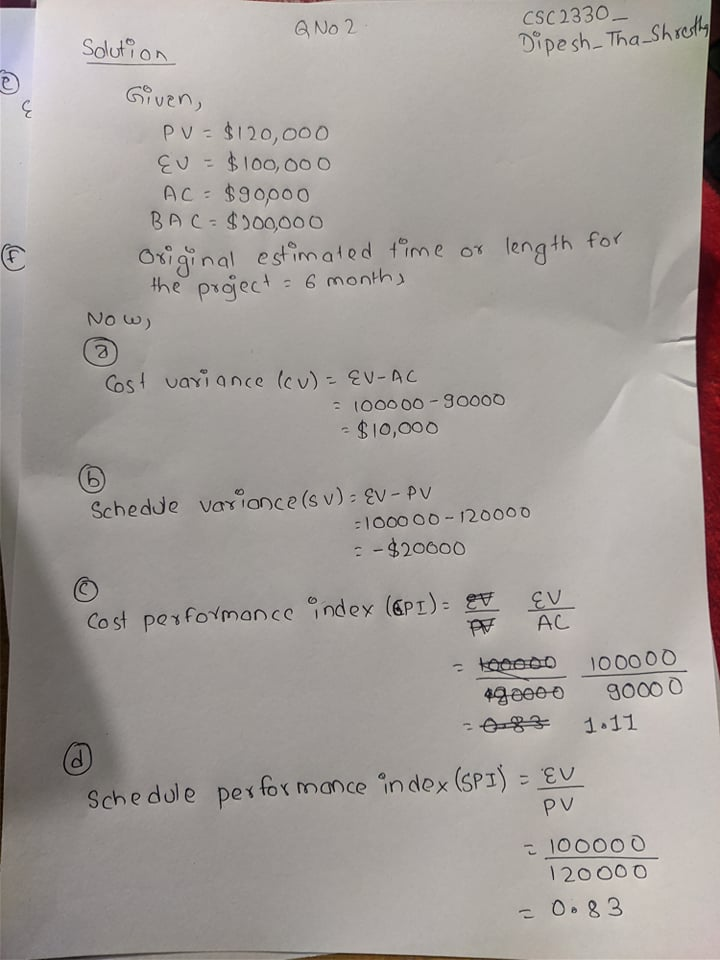 Q No 2.
CSC2330_
Dipesh_Tha_Shrestha
Solution
Given,
PV = $120,000
EV = $100,000
AC = $90,000
BAC = $200,000
Original estimated time or length for
the project = 6 months
Now,
(a)
Cost variance (CV) = EV-AC
= 100000-90000
= $10,000
(b)
Schedule variance (SV) = EV-PV
= 100000-120000
= -$20000
(c)
Cost performance index (CPI) = EV/PV EV/AC
= 100000/120000 100000/90000
= 0.83 1.11
(d)
Schedule performance index (SPI) = EV/PV
= 100000/120000
= 0.83
(e)
(f)